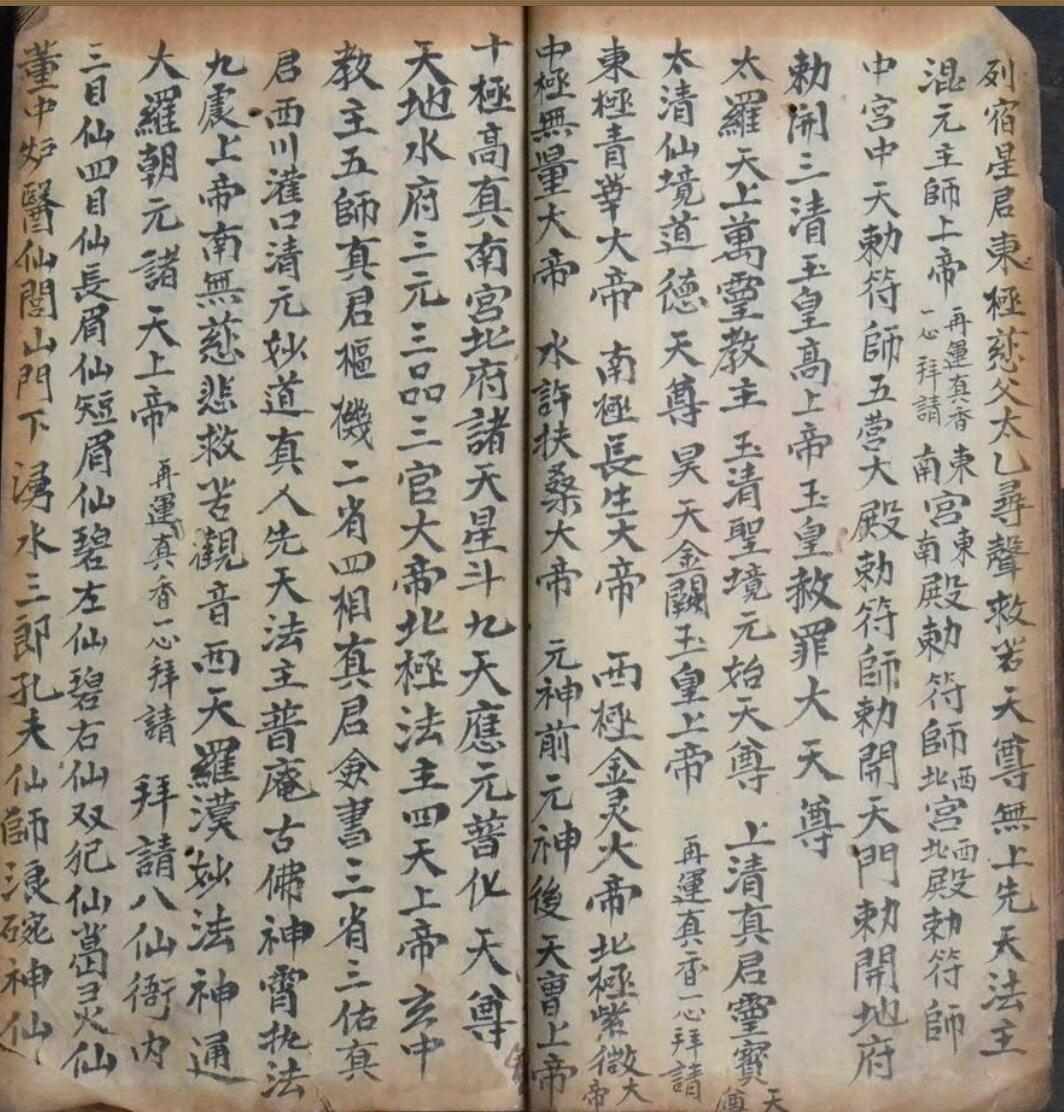 列宿星君東極慈父太乙尋聲救苦天尊無上先天法主
混元主師上帝 再運真香一心拜請 東南宮東南殿勅符師西北宮西北殿勅符師
中宮中天勅符師五营大殿勅符師勅開天門勅開地府
勅開三清玉皇高上帝玉皇赦罪大天尊
太羅天上萬靈教主 玉清聖境元始天尊 上清真君靈寶天尊
太清仙境道德天尊 昊天金闕玉皇上帝 再運真香一心拜請
東極青華大帝 南極長生大帝 西極金灵大帝北極紫微大帝
中極無量大帝 水許扶桑大帝 元神前元神後天曹上帝
十極高真南宮北府諸天星斗九天應元普化天尊
天地水府三元三品三官大帝北極法主四天上帝玄中
教主五師真君樞機二省四相真君僉書三省三佑真
君西川灌口清元妙道真人先天法主普庵古佛神霄执法
九處上帝南無慈悲救苦觀音西天羅漢妙法神通
大羅朝元諸天上帝 再運真香一心拜請 拜請八仙衙内
三目仙四目仙長眉仙短眉仙碧左仙碧右仙双犯仙葛灵仙
董中炉醫仙閭山門下 湧水三郎孔夫仙師浪碗神仙